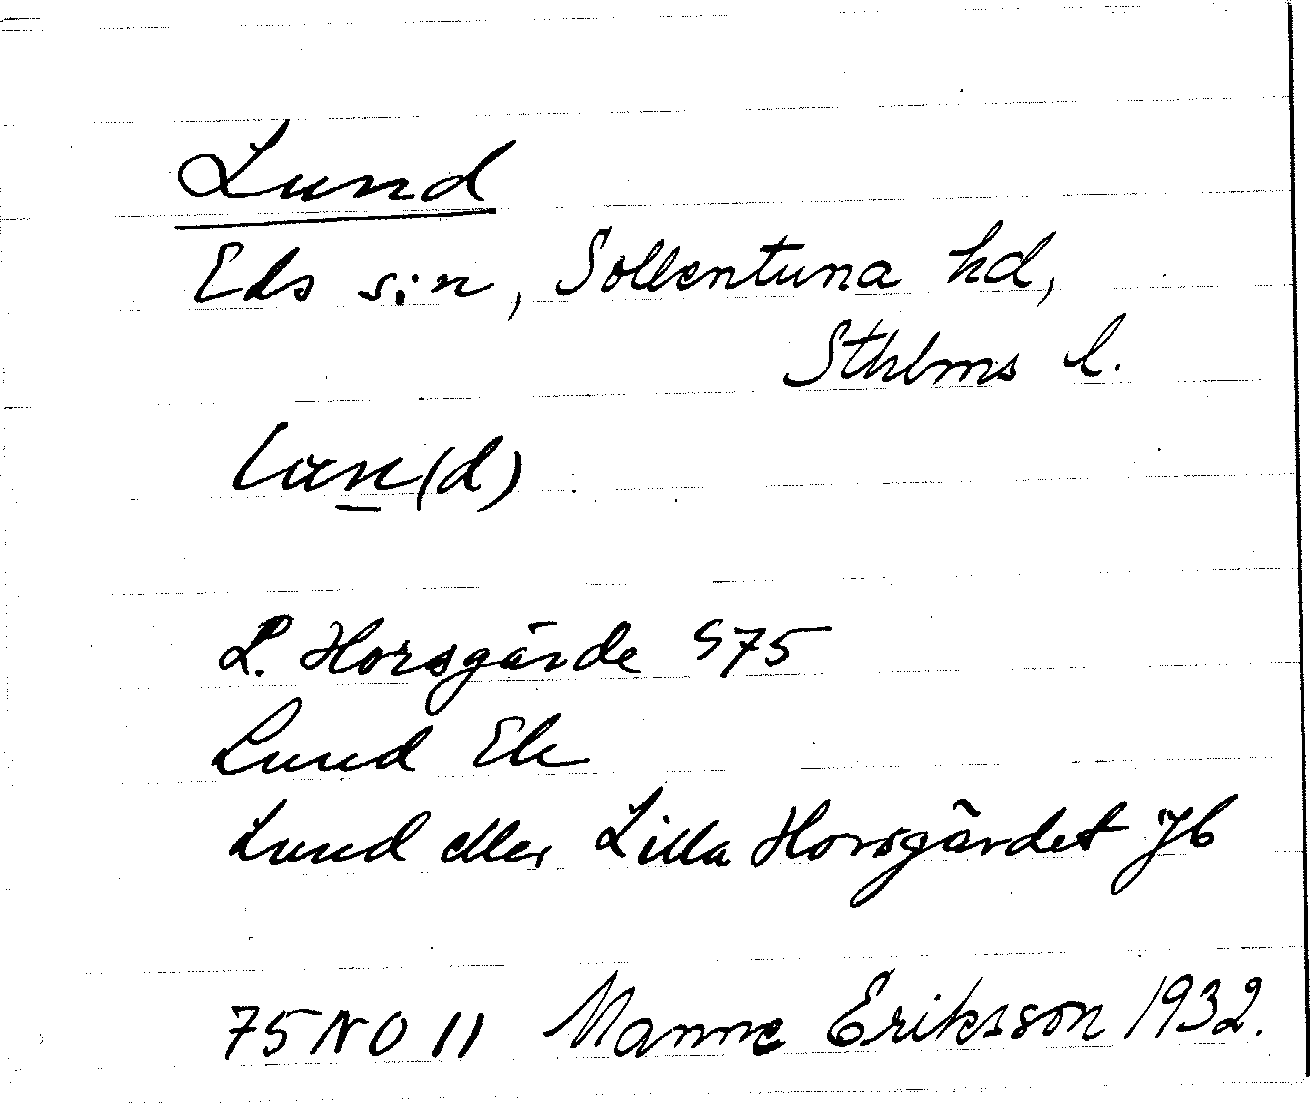 Lund
Eds s:n, Sollentuna hd,
Sthlms l.
lun(d)
L. Horsgärde S75
Lund Ek
Lund eller Lilla Horsgärdet Jb
75 NO 11 Manne Eriksson 1932.